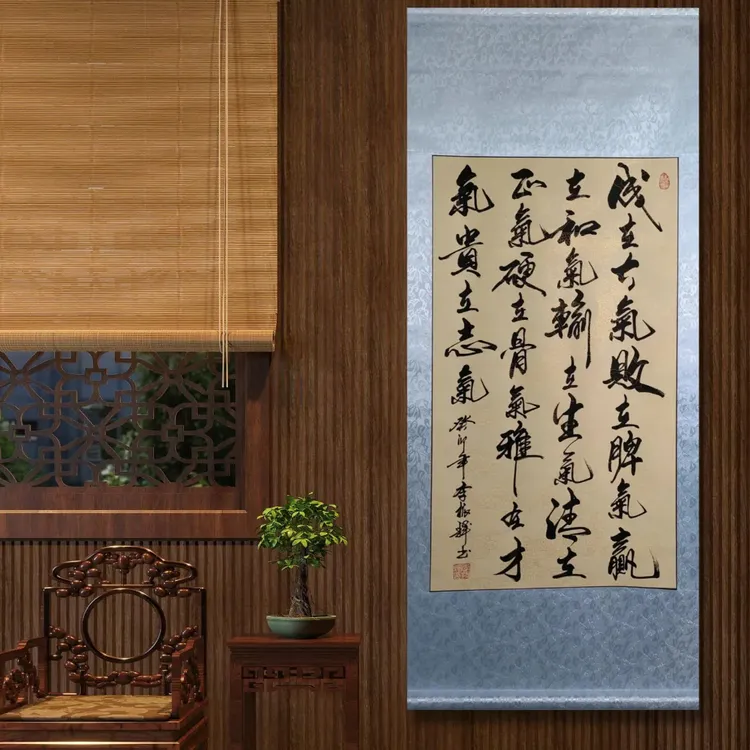 成在大氣敗在脾氣贏
在和氣輸在生氣清在
正氣硬在骨氣雅在才
氣貴在志氣
癸卯年李振輝书